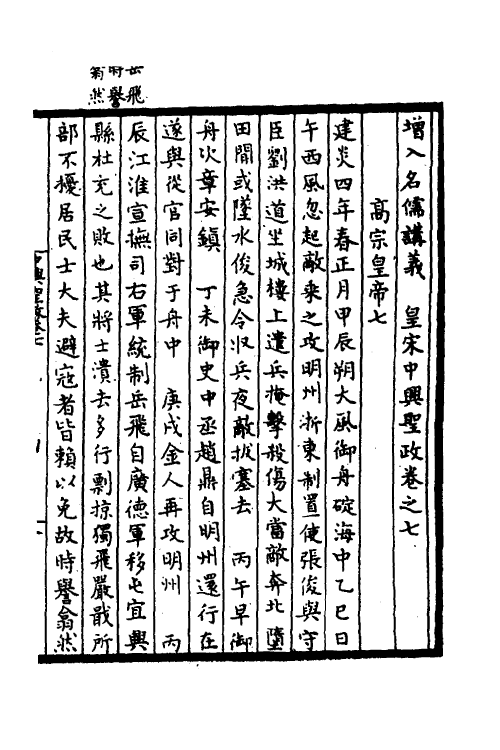 岳飛
時譽
翕然
增入名儒講義　皇宋中興聖政卷之七
高宗皇帝七
建炎四年春正月甲辰朔大風御舟碇海中乙巳日
午西風忽起敵乘之攻明州浙東制置使張俊與守
臣劉洪道坐城樓上遣兵掩擊殺傷大當敵奔北墮
田間或墜水俊急令收兵夜敵拔塞去　丙午早御
舟次章安鎮　丁未御史中丞趙鼎自明州還行在
遂與從官同對于舟中　庚戌金人再攻明州　丙
辰江淮宣撫司右軍統制岳飛自廣德軍移屯宜興
縣杜充之敗也其將士潰去多行剽掠獨飛嚴戢所
部不擾居民士大夫避寇者皆賴以免故時譽翕然